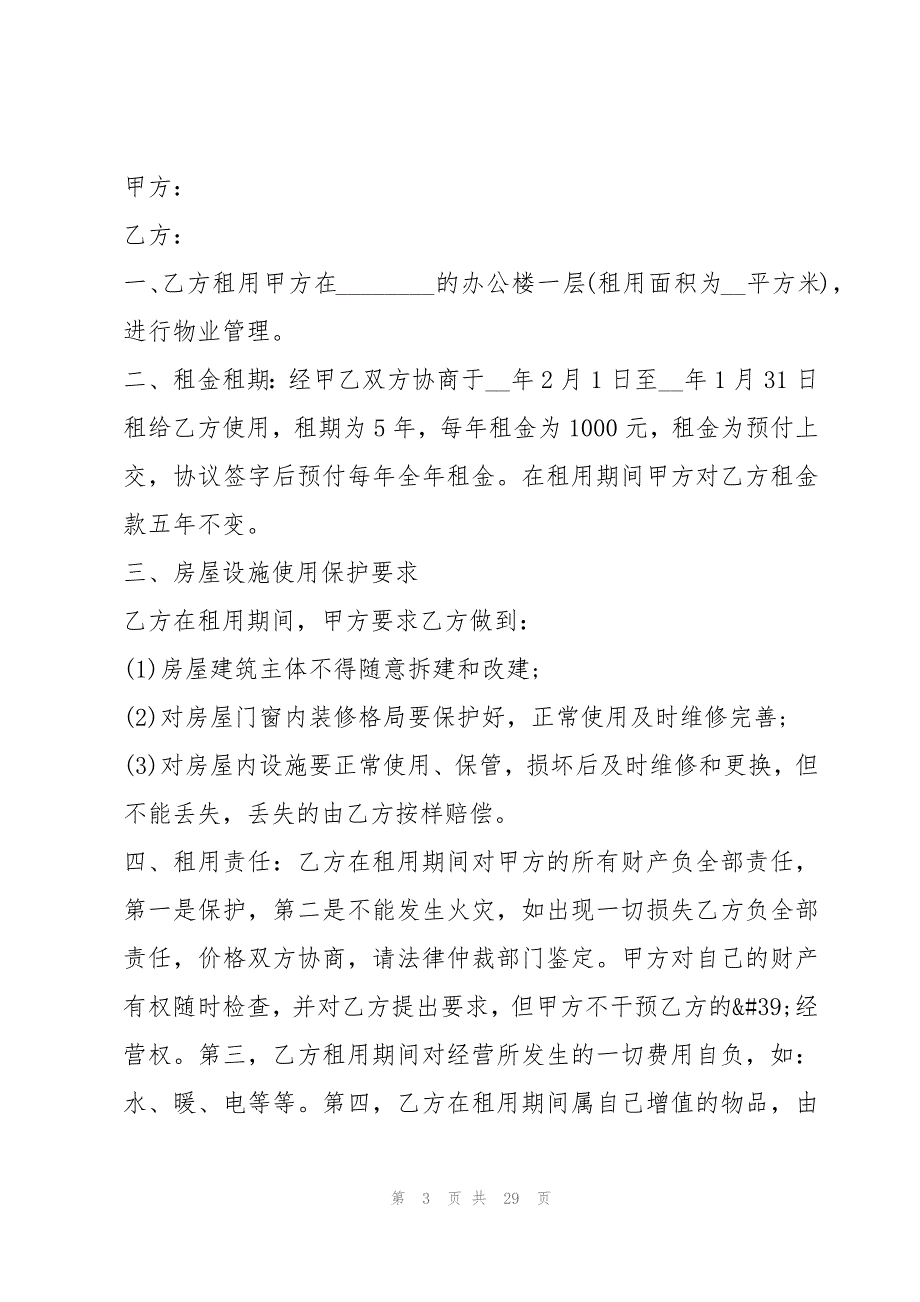 甲方：
乙方：
一、乙方租用甲方在________的办公楼一层(租用面积为__平方米)，
进行物业管理。
二、租金租期：经甲乙双方协商于__年2月1日至__年1月31日
租给乙方使用，租期为5年，每年租金为1000元，租金为预付上
交，协议签字后预付每年全年租金。在租用期间甲方对乙方租金
款五年不变。
三、房屋设施使用保护要求
乙方在租用期间，甲方要求乙方做到：
(1)房屋建筑主体不得随意拆建和改建;
(2)对房屋门窗内装修格局要保护好，正常使用及时维修完善;
(3)对房屋内设施要正常使用、保管，损坏后及时维修和更换，但
不能丢失，丢失的由乙方按样赔偿。
四、租用责任：乙方在租用期间对甲方的所有财产负全部责任，
第一是保护，第二是不能发生火灾，如出现一切损失乙方负全部
责任，价格双方协商，请法律仲裁部门鉴定。甲方对自己的财产
有权随时检查，并对乙方提出要求，但甲方不干预乙方的&#39;经
营权。第三，乙方租用期间对经营所发生的一切费用自负，如：
水、暖、电等等。第四，乙方在租用期间属自己增值的物品，由
第 3 页 共 29 页